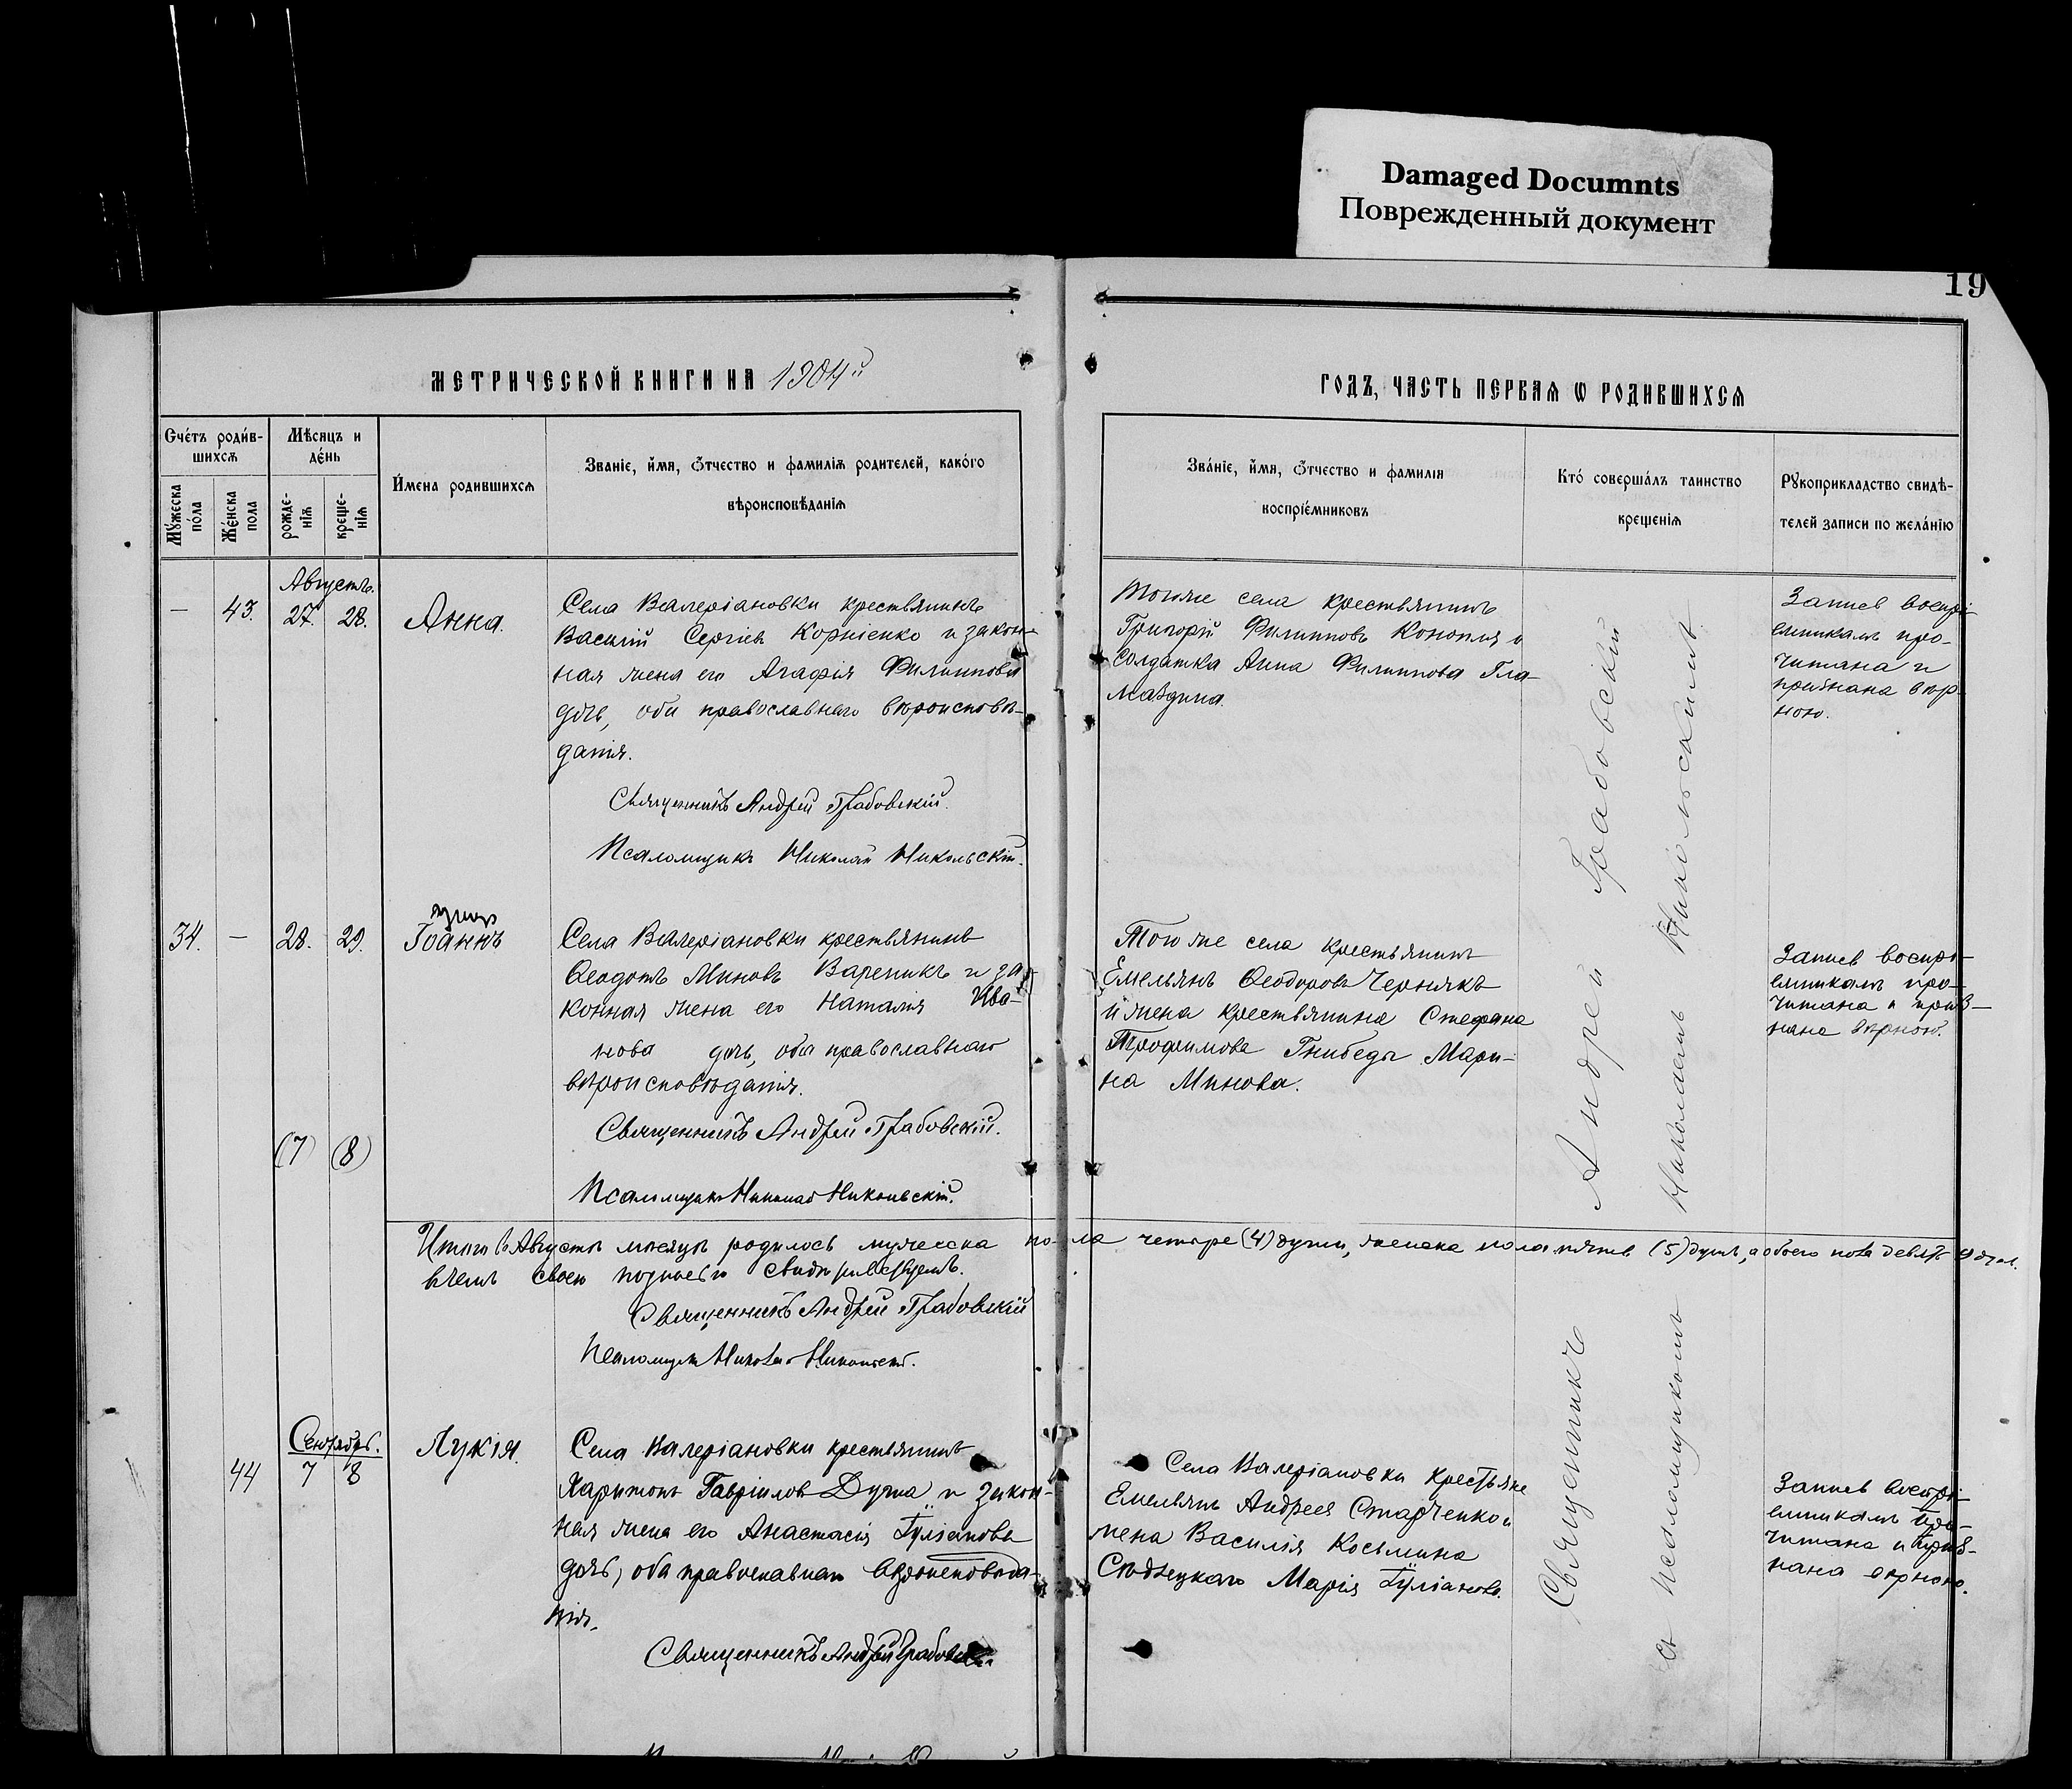 Damaged Documnts
Поврежденный документ
19
МЕТРИЧЕСКОЙ КНИГИ НА 1904й
ГОДЪ, ЧАСТЬ ПЕРВАЯ Ѡ РОДИВШИХСЯ
Счётъ роди́в-
шихся
Му́жеска по́ла
Же́нска пола
Мѣсяцъ и
де́нь
рожде-
нїя
креще-
нїя
И́мена родившихся
Званїе, и́мя, ѻ́тчество и фамилїя родителей, како́го
вѣроисповѣданїя
Зва́нїе, и́мя, ѻ́тчество и фамилїя
воспрїе́мниковъ
Кто́ соверша́лъ таинство
крещенїя
Рꙋкоприкладство свидѣ-
телей записи по жела́нїю
Августъ.
— 43. 27. 28. Анна.
Села Валеріановки крестьянинъ
Василій Сергіевъ Корніенко и закон-
ная жена его Агафія Филиппова
дочь, оба православнаго вѣроисповѣ-
данія.
Священникъ Андрей Грабовскій.
Псаломщикъ Николай Никольскій.
Тогоже села крестьянинъ
Григорій Филипповъ Конопля и
Солдатка Анна Филиппова Гла-
Запись воспрі-
емникамъ про-
читана и
признана вѣр-
ною.
34. — 28. 29. Іоаннъ
Села Валеріановки крестьянинъ
Ѳеодотъ Миновъ Вареникъ и за-
конная жена его Наталія Ива-
нова дочь, оба православнаго
вѣроисповѣданія.
Священникъ Андрей Грабовскій.
(7) (8)
Псаломщикъ Николай Никольскій.
Того же села крестьянинъ
Емельянъ Ѳеодоровъ Чернякъ
и жена крестьянина Стефана
Трофимова Гнибеды Мари-
на Минова.
Запись воспрі-
емникамъ про-
читана и приз-
нана вѣрною.
Итого въ Августѣ мѣсяцѣ родилось мужеска пола четыре (4) души, женска пола пять (5) душъ, а обоего пола девять 9 душ.
въ чемъ своею подписью свидѣтельствуемъ.
Священникъ Андрей Грабовскій
Псаломщикъ Николай Никольскій.
Сентябрь.
44 7 8 Лукія.
Села Валеріановки крестьянинъ
Харитонъ Гавріиловъ Дучка и закон-
ная жена его Анастасія Іуліанова
дочь, оба православнаго вѣроисповѣда-
нія.
Священникъ Андрей Грабовскій
Села Валеріановки крестьяне
Емельянъ Андреевъ Старченко и
жена Василія Косьмина
Марія Іуліанова.
Запись воспрі-
емникамъ про-
читана и приз-
нана вѣрною.
Священникъ Андрей Грабовскій
съ псаломщикомъ Николаемъ Никольскимъ